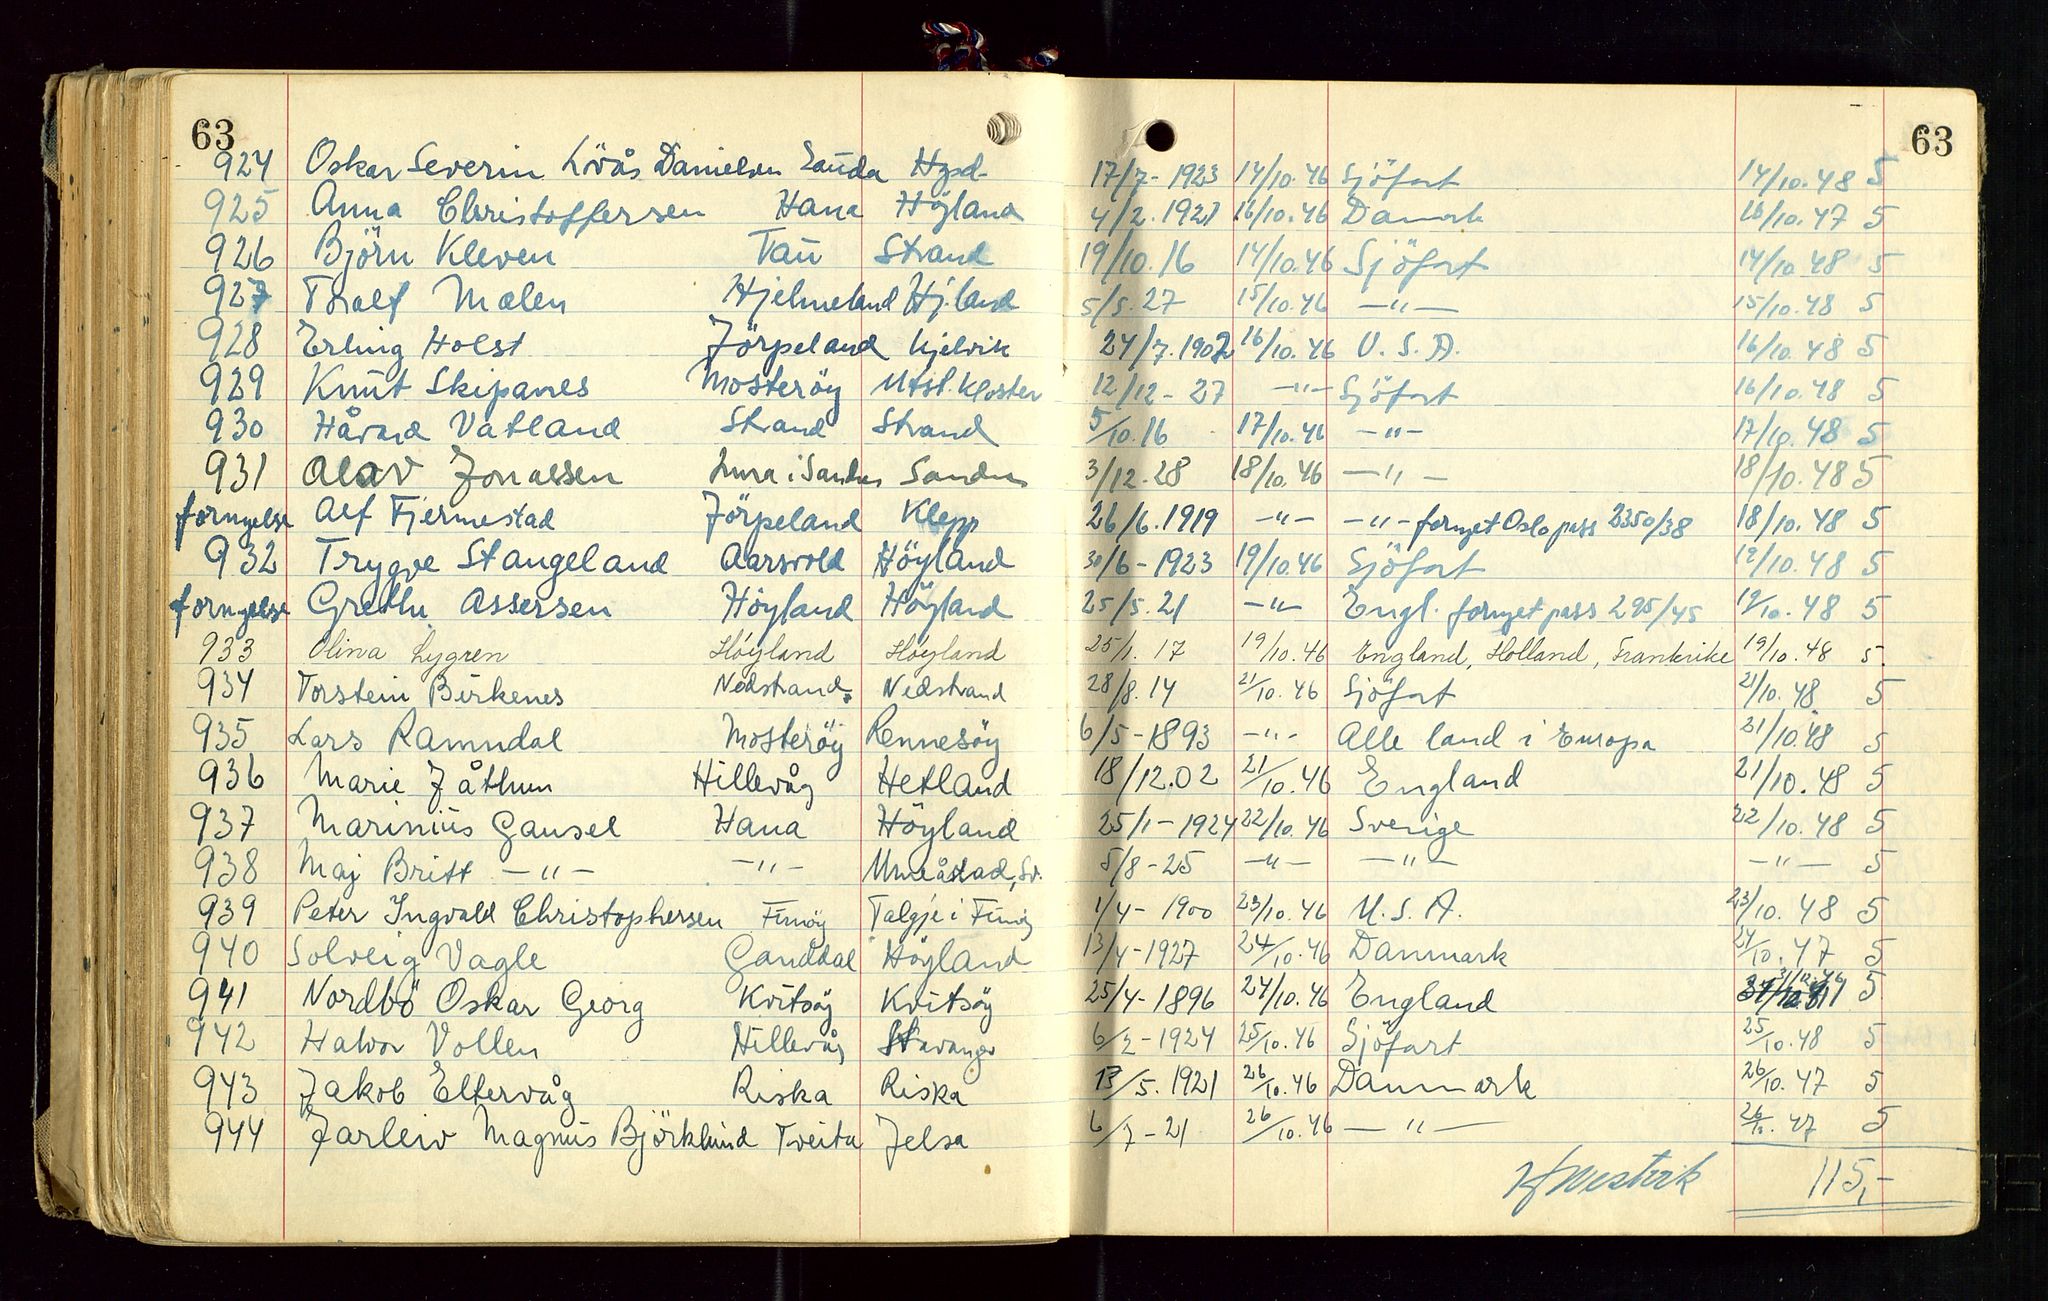 63 63
924 Oskar Severin Lövås Danielsen Sauda Hgsd. 17/7-1923 14/10.46 Sjöfart 14/10.48 5
925 Anna Christoffersen Hana Höyland 4/2.1921 16/10.46 Danmark 16/10.47 5
926 Björn Kleven Tau Strand 19/10.16 14/10.46 Sjöfart 14/10.48 5
927 Tralf Mælen Hjelmeland Hj.land 5/5.27 15/10.46 —"— 15/10.48 5
928 Erling Holst Jörpeland Gjelvik 24/7.1902 16/10.46 U.S.A. 16/10.48 5
929 Knut Skipanes Mosteröy Utst. Kloster 12/12-27 —"— Sjöfart 16/10.48 5
930 Håvard Vatland Strand Strand 5/10.16 17/10.46 —"— 17/10.48 5
931 Olav Jonassen Lura i Sandnes Sandnes 3/12.28 18/10.46 —"— 18/10.48 5
fornyelse Alf Fjermestad Jörpeland Klepp 26/6.1919 —"— —"— fornyet Oslopass 2350/38 18/10.48 5
932 Trygve Stangeland Aarsvold Höyland 30/6-1923 19/10.46 Sjöfart 19/10.48 5
fornyelse Grethe Assersen Höyland Höyland 25/5.21 —"— Engl. fornyet pass 295/45 19/10.48 5
933 Olina Lygren Høyland Høyland 25/1.17 19/10.46 England, Holland, Frankrike 19/10.48 5.
934 Torstein Birkenes Nedstrand. Nedstrand 28/8.14 21/10.46 Sjöfart 21/10.48 5
935 Lars Ramndal Mosteröy Rennesöy 6/5-1893 —"— Alle land i Europa 21/10.48 5
936 Marie Jåthun Hillevåg Hetland 18/12.02 21/10.46 England 21/10.48 5
937 Marinius Gausel Hana Höyland 25/1-1924 22/10.46 Sverige 22/10.48 5
938 Maj Britt —"— —"— Umeåstad, Sv. 5/8-25 —"— —"— —"— 5
939 Peter Ingvald Christophersen Finöy Talgje i Finöy 1/4-1900 23/10.46 U.S.A. 23/10.48 5
940 Solveig Vagle Ganddal Höyland 13/4-1927 24/10.46 Danmark 24/10.47 5
941 Nordbö Oskar Georg Kvitsöy Kvitsöy 25/4-1896 24/10.46 England 31/12.46 5
942 Halvor Vollen Hillevåg Stavanger 6/2-1924 25/10.46 Sjöfart 25/10.48 5
943 Jakob Eltervåg Riska Riska 13/5.1921 26/10.46 Danmark 26/10.47 5
944 Jarleiv Magnus Björklund Tveita Jelsa 6/7-21 26/10.46 —"— 26/10.47 5
115,-